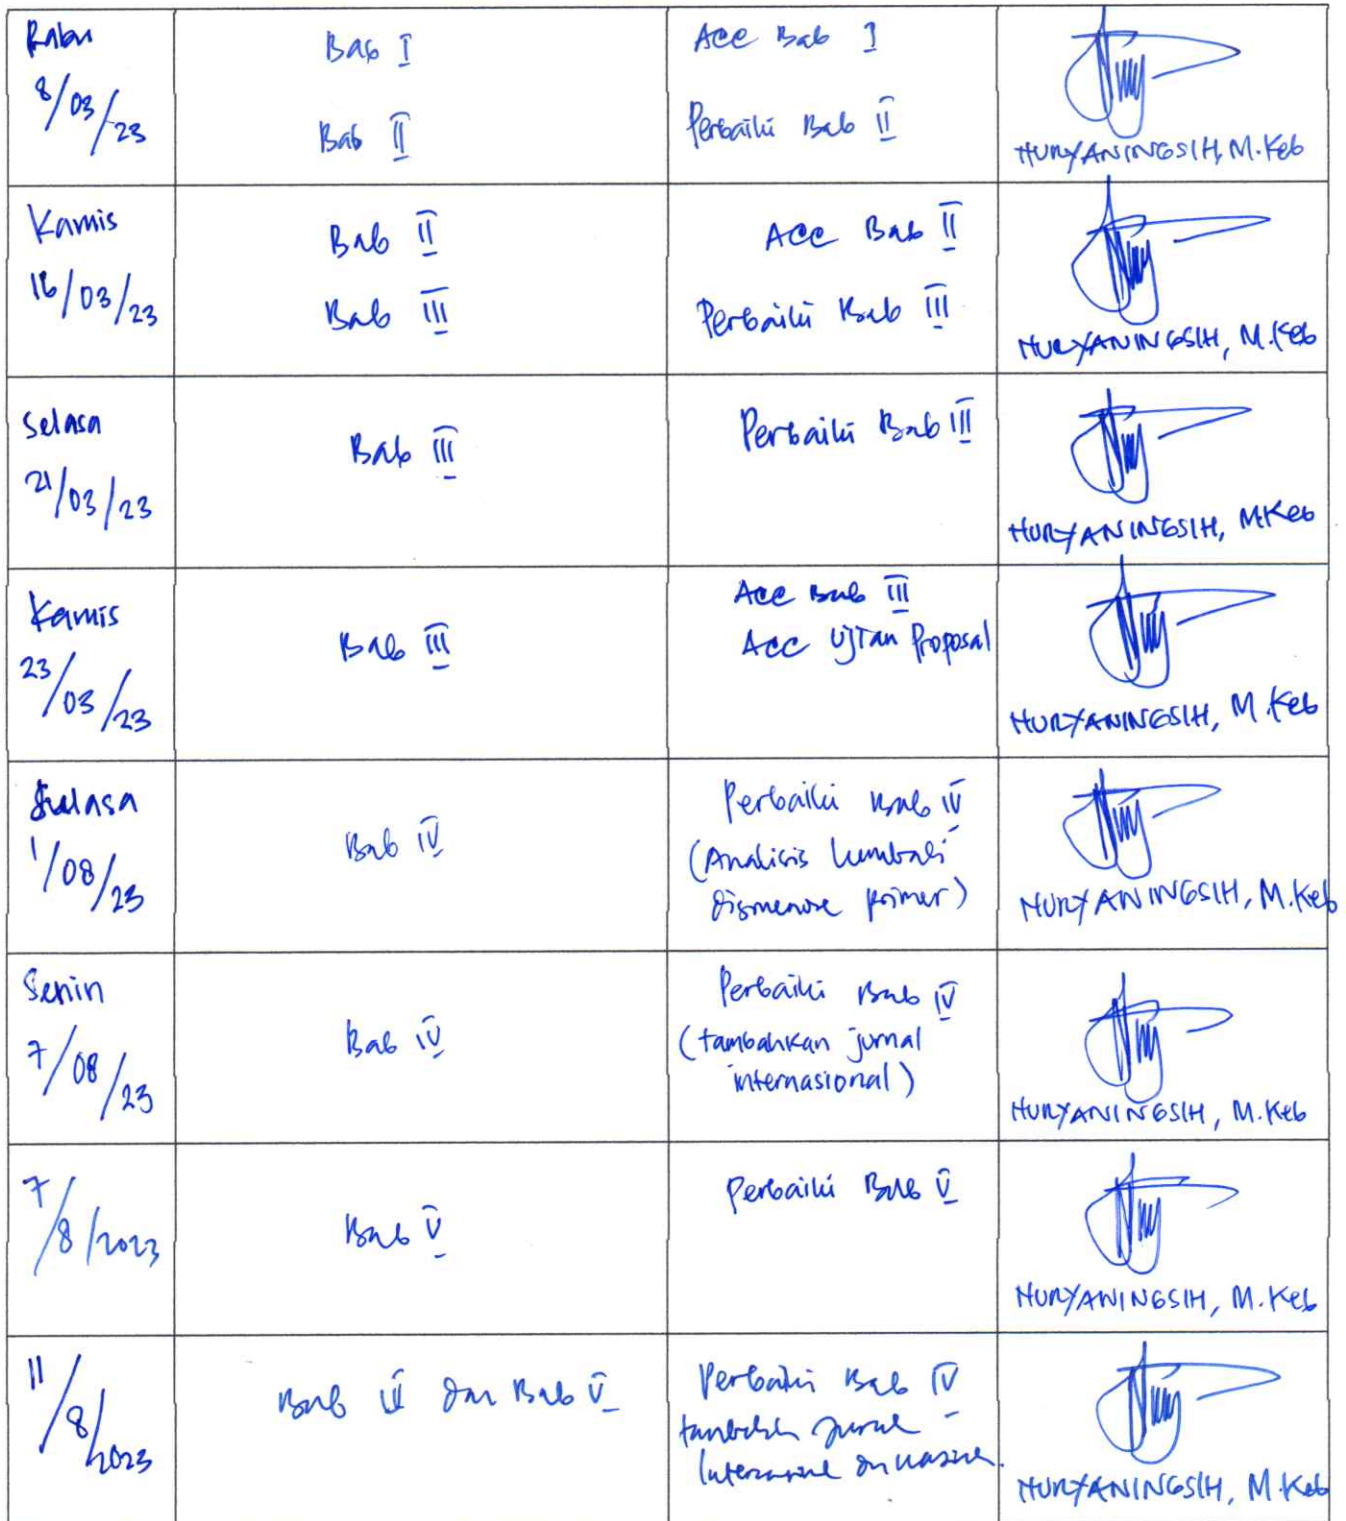 Rabu
8/03/23
Bab I
Bab II
Acc Bab I
Perbaiki Bab II
NURYANINGSIH, M.Keb
Kamis
16/03/23
Bab II
Bab III
Acc Bab II
Perbaiki Bab III
NURYANINGSIH, M.Keb
Selasa
21/03/23
Bab III
Perbaiki Bab III
NURYANINGSIH, M.Keb
Kamis
23/03/23
Bab III
Acc Bab III
Acc Ujian Proposal
NURYANINGSIH, M.Keb
Selasa
1/08/23
Bab IV
Perbaiki Bab IV
(Analisis kembali
dismenore primer)
NURYANINGSIH, M.Keb
Senin
7/08/23
Bab IV
Perbaiki Bab IV
(tambahkan jurnal
internasional)
NURYANINGSIH, M.Keb
7/8/2023
Bab V
Perbaiki Bab V
NURYANINGSIH, M.Keb
11/8/2023
Bab dan Bab V
Perbaiki Bab IV
NURYANINGSIH, M.Keb